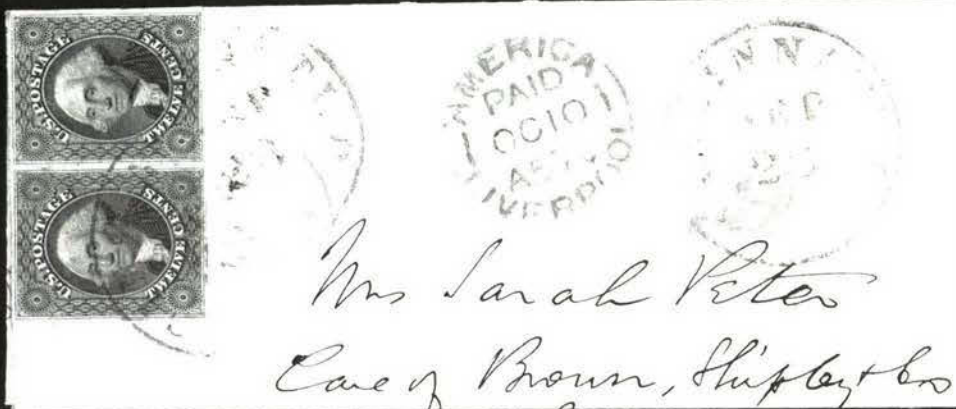 U.S. POSTAGE
TWELVE CENTS
U.S. POSTAGE
TWELVE CENTS
AMERICA
PAID
OC 10
LIVERPOOL
Mrs Sarah Peter
Care of Brown, Shipley & Cos